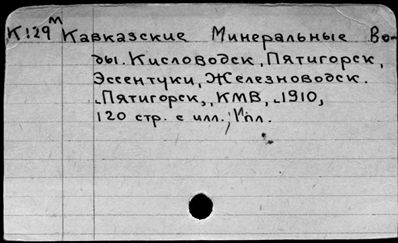 К!29 м Кавказские Минеральные Во-
ды. Кисловодск, Пятигорск,
Эссентуки, Железноводск.
Пятигорск, КМВ, 1910,
120 стр. с илл., 1 пл.